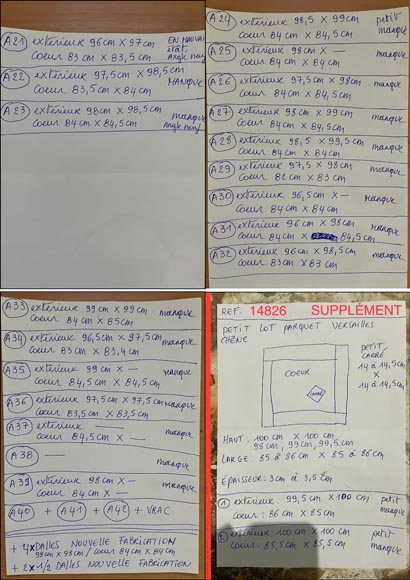 A21 extérieur 96cm X 97cm EN MAUVAIS
coeur 83cm X 83,5cm état, Angle neuf
A22 extérieur 97,5cm X 98,5cm
coeur 83,5cm X 84cm MANQUE
A23 extérieur 98cm X 98,5cm manque
coeur 84cm X 84,5cm Angle neuf
A24 extérieur 98,5 X 99cm petit
coeur 84cm X 84,5cm manque
A25 extérieur 98cm X —
coeur 84cm X 84cm manque
A26 extérieur 97,5cm X 98cm
coeur 84cm X 84,5cm manque
A27 extérieur 98cm X 99cm
coeur 84cm X 84,5cm manque
A28 extérieur 98,5 X 99,5cm
coeur 84cm X 84cm manque
A29 extérieur 97,5 X 98cm
coeur 82cm X 83cm manque
A30 extérieur 96,5cm X — manque
coeur 84cm X 84cm
A31 extérieur 96cm X 98cm manque
coeur 84cm X 84,5cm
A32 extérieur 96cm X 98,5cm manque
coeur 83cm X 83cm
A33 extérieur 99cm X 99cm manque
coeur 84cm X 85cm
A34 extérieur 96,5cm X 97,5cm
coeur 83cm X 83,4cm manque
A35 extérieur 99cm X — manque
coeur 84,5cm X 84,5cm
A36 extérieur 97,5cm X 97,5cm manque
coeur 83,5cm X 83,5cm
A37 extérieur — manque
coeur 84,5cm X —
A38 — manque
A39 extérieur 98cm X — manque
coeur 84cm X —
A40 + A41 + A42 + VRAC
+ 4X DALLES NOUVELLE FABRICATION
98cm X 98cm / coeur 84cm X 84cm
+ 2X 1/2 DALLES NOUVELLE FABRICATION
REF. 14826 SUPPLÉMENT
PETIT LOT PARQUET VERSAILLES
CHÊNE
COEUR
CARRÉ
PETIT
CARRÉ
14 à 14,5cm
X
14 à 14,5cm
HAUT : 100cm X 100cm
98cm, 99cm, 99,5cm
LARGE : 85 à 86cm X 85 à 86cm
ÉPAISSEUR : 3cm à 3,5cm
1 extérieur : 99,5cm X 100cm petit
coeur : 86cm X 85cm manque
2 extérieur 100cm X 100cm petit
coeur : 85,5cm X 85,5cm manque